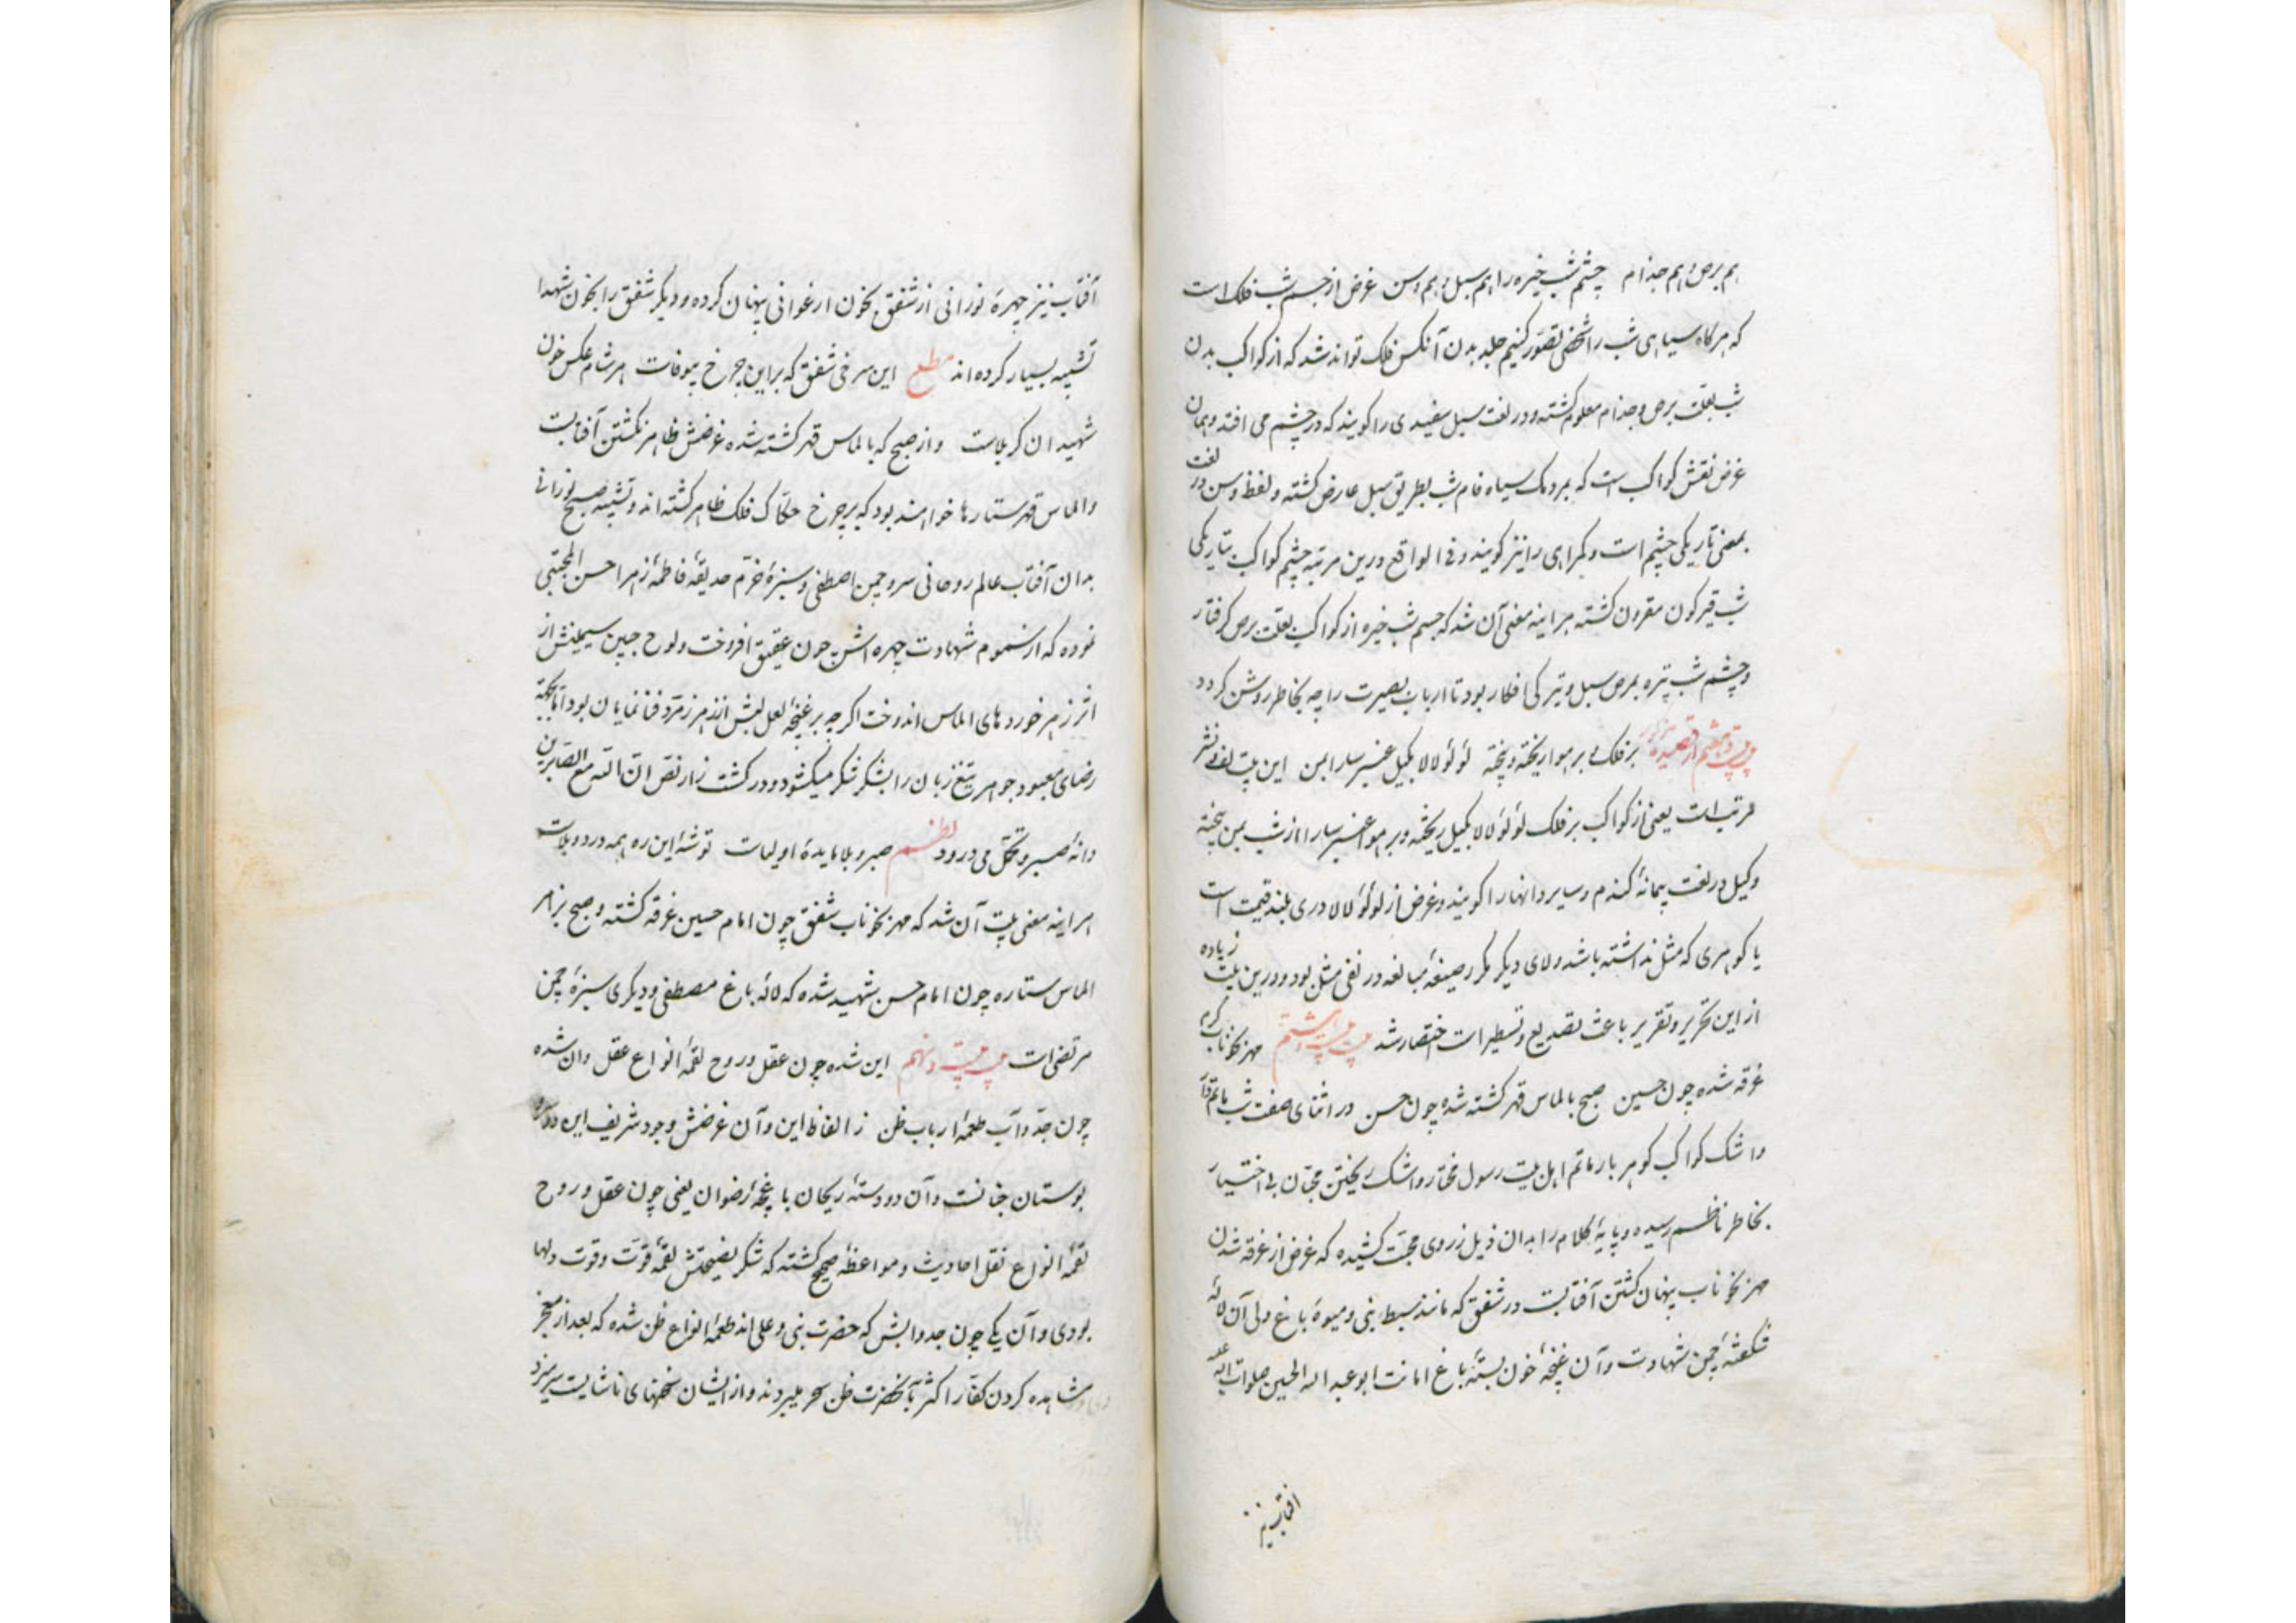 هم برص و هم جذام چشم شب خیره را هم سبل و هم وسن غرض از جسم شب فلک است
که هرکاه سیاهی شب را شخصی تصور کنیم جلد بدن آنکس فلک تواند شد که از کواکب بدن
شب بعلت برص و جذام معلوم کشته و در لغت سبل سفیدی را کویند که در چشم می افتد و همان
غرض نقش کواکب است که بمردمک سیاه فام شب بطریق سبل عارض کشته و لفظ وسن در لغت
بمعنی تاریکی چشم است و کمراهی را نیز کویند و فی الواقع درین مرتبه چشم کواکب بتاریکی
شب قیرکون مقرون کشته هراینه معنی آن شد که جسم شب خیره از کواکب بعلت برص کرفتار
و چشم شب تیره بمرض سبل و تیرکی افکار بود تا ارباب بصیرت را چه بخاطر روشن کردد
بیت هشتم از قصیده بر فلک و بر هوا ریخته و بیخته لؤلؤ لالا بکیل عنبر سارا بمن این بیت لف و نشر
مرتب است یعنی از کواکب بر فلک لؤلؤ لالا بکیل ریخته و بر هوا عنبر سارا از شب بمن بیخته
و کیل در لغت پیمانهٔ کندم و سایر دانها را کویند و غرض از لؤلؤ لالا دری بلند قیمت است
یا کوهری که مثل نداشته باشد و لای دیکر مکرر صیغهٔ مبالغه در نفی مثل بود و درین بیت زیاده
از این تحریر و تقریر باعث تصدیع و تسطیر است اختصار شد مهر بخوناب کرم
غرقه شده چون حسین صبح بالماس قهر کشته شده چون حسن در اثنای صفت شب ماتم
و اشک کواکب کوهر بار ماتم اهل بیت رسول مختار و اشک ریختن محبان بی اختیار
بخاطر ناظم رسیده و پایهٔ کلام را بدان ذیل از روی محبت کشیده که غرض از غرقه شدن
مهر بخوناب پنهان کشتن آفتابست در شفق که مانند سبط نبی و میوهٔ باغ ولی آن لالهٔ
شکفتهٔ چمن شهادت و آن غنچهٔ خون بستهٔ باغ امانت ابو عبد الله الحسین صلوات الله علیه
افتاب نیز
آفتاب نیز چهرهٔ نورانی از شفق بخون ارغوانی پنهان کرده و دیکر شفق را بخون شهدا
تشبیه بسیار کرده اند مطلع این سرخی شفق که برین چرخ بیوفاست هر شام عکس خون
شهیدان کربلاست و از صبح که بالماس قهر کشته شده غرضش ظاهر نکشتن آفتابست
و الماس قهر ستارها خواهند بود که بر چرخ حکاک فلک ظاهر کشته اند و تشبیه صبح نورانی
بدان آفتاب عالم روحانی سرو چمن اصطفی و سبزهٔ خرم حدیقهٔ فاطمهٔ زهرا حسن المجتبی
نموده که از سموم شهادت چهره اش چون عقیق افروخت و لوح جبین سیمینش از
اثر زهر خوردهای الماس اندوخت اکرچه بر غنچهٔ لعل لبش از زهر زمرد فنا نمایان بود اما بجهة
رضای معبود جوهر تیغ زبان را بشکر شکر میکشود و در کشت زار نص ان الله مع الصابرین
دانهٔ صبر و تحمل می درود نظم صبر و بلا مایدهٔ اولیاست توشهٔ این ره همه درد و بلاست
هراینه معنی بیت آن شد که مهر بخوناب شفق چون امام حسین غرقه کشته و صبح بزهر
الماس ستاره چون امام حسن شهید شده که لالهٔ باغ مصطفی و دیکری سبزهٔ چمن
مرتضی است بیت بیست و نهم این شده چون عقل و روح لقمهٔ انواع عقل وان شده
چون جد و آب طعمهٔ ارباب ظن ز الفاظ این و آن غرضش وجود شریف این دو
بوستان جنانست و آن دو دستهٔ ریحان باغچهٔ رضوان یعنی چون عقل و روح
لقمهٔ انواع نقل احادیث و مواعظهٔ صحیح کشته که شکر نصیحتش لقمهٔ قوت و قوت دلها
بودی و آن یکی چون جد و ابش که حضرت نبی و علی اند طعمهٔ انواع ظن شده که بعد از معجز
مشاهده کردن کفار اکثر بآنحضرت ظن سحر میبردند و از ایشان سخنهای ناشایست سر میزد